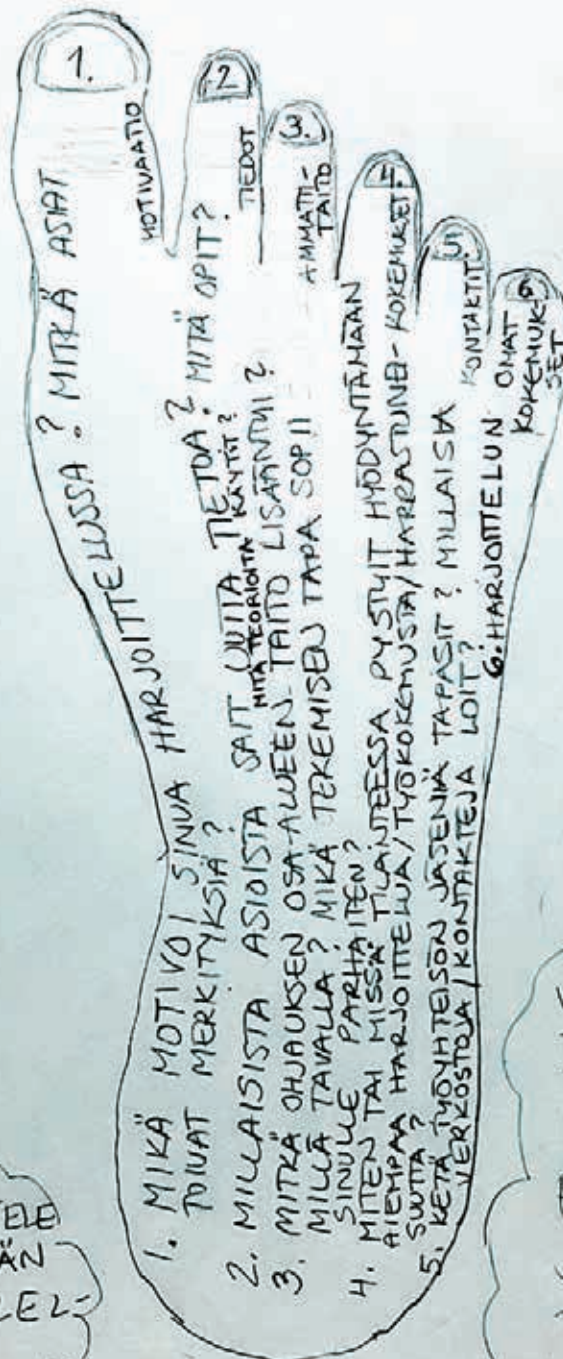 1.
MOTIVAATIO
2
TIEDOT
3.
AMMATTI-
TAITO
4
KOKEMUKSET.
5
KONTAKTIT.
6
OMAT
KOKEMUK-
SET
1. MIKÄ MOTIVOI SINUA HARJOITTELUSSA? MITKÄ ASIAT
TOIVAT MERKITYKSIÄ?
2. MILLAISISTA ASIOISTA SAIT UUTTA TIETOA? MITÄ OPIT?
MITÄ TEORIOITA KÄYTIT?
3. MITKÄ OHJAUKSEN OSA-ALUEEN TAITO LISÄÄNTYI?
MILLÄ TAVALLA? MIKÄ TEKEMISEN TAPA SOPII
SINULLE PARHAITEN?
4. MITEN TAI MISSÄ TILANTEESSA PYSTYIT HYÖDYNTÄMÄÄN
AIEMPAA HARJOITTELUA/TYÖKOKEMUSTA/HARRASTUNEI-
SUUTTA?
5. KETÄ TYÖYHTEISÖN JÄSENIÄ TAPASIT? MILLAISIA
VERKOSTOJA/KONTAKTEJA LOIT?
6. HARJOITTELUN
TELE
ÄN